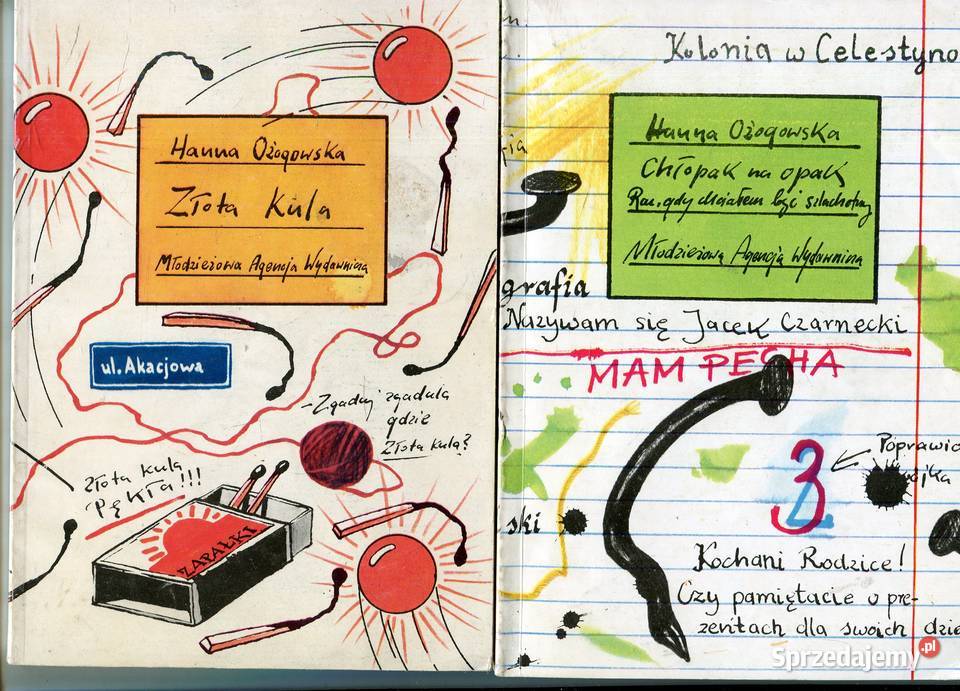 Hanna Ożogowska
Złota Kula
Młodzieżowa Agencja Wydawnicza
ul. Akacjowa
- Zgaduj zgadula
gdzie
Złota kula?
Złota kula
Pękła!!!
ZAPAŁKI
n.
Kolonia w Celestyno
Hanna Ożogowska
Chłopak na opak
Raz, gdy chciałem być szlachetny
Młodzieżowa Agencja Wydawnicza
fia
grafia
Nazywam się Jacek Czarnecki
MAM PECHA
3
2
Poprawic
ójka
ski
Kochani Rodzice!
Czy pamiętacie o pre-
zentach dla swoich dzie
Sprzedajemy.pl